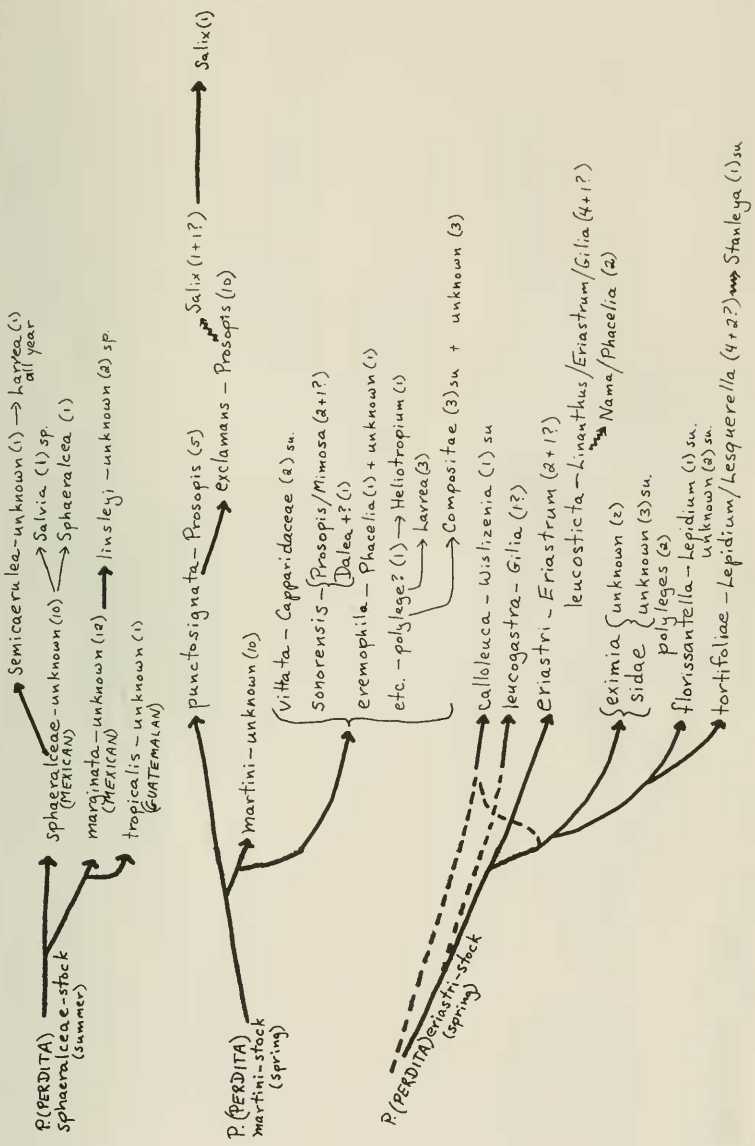 P.(PERDITA)
sphaeralceae-stock
(summer)
Semicaerulea-unknown (1) → Larrea (1)
all year
Sphaeralceae-unknown (10) → Salvia (1) sp.
(MEXICAN)
→ Sphaeralcea (1)
marginata-unknown (12) → linsleyi-unknown (2) sp.
(MEXICAN)
tropicalis-unknown (1)
(GUATEMALAN)
P.(PERDITA)
martini-stock
(spring)
punctosignata-Prosopis (5)
Salix (1+1?) → Salix (1)
exclamans-Prosopis (10)
martini-unknown (10)
Vittata-Capparidaceae (2) su.
Sonorensis-{Prosopis/Mimosa (2+1?)
{Dalea+? (1)
eremophila-Phacelia (1) + unknown (1)
etc.-polylege? (1) → Heliotropium (1)
→ Larrea (3)
→ Compositae (3) su + unknown (3)
P.(PERDITA) eriastri-stock
(spring)
calloleuca-Wislizenia (1) su
leucogastra-Gilia (1?)
eriastri-Eriastrum (2+1?)
leucosticta-Linanthus/Eriastrum/Gilia (4+1?)
Nama/Phacelia (2)
{eximia {unknown (2)
{sidae {unknown (3) su.
polyleges (2)
florissantella-Lepidium (1) su.
unknown (2) su.
tortifoliae-Lepidium/Lesquerella (4+2?) Stanleya (1) su